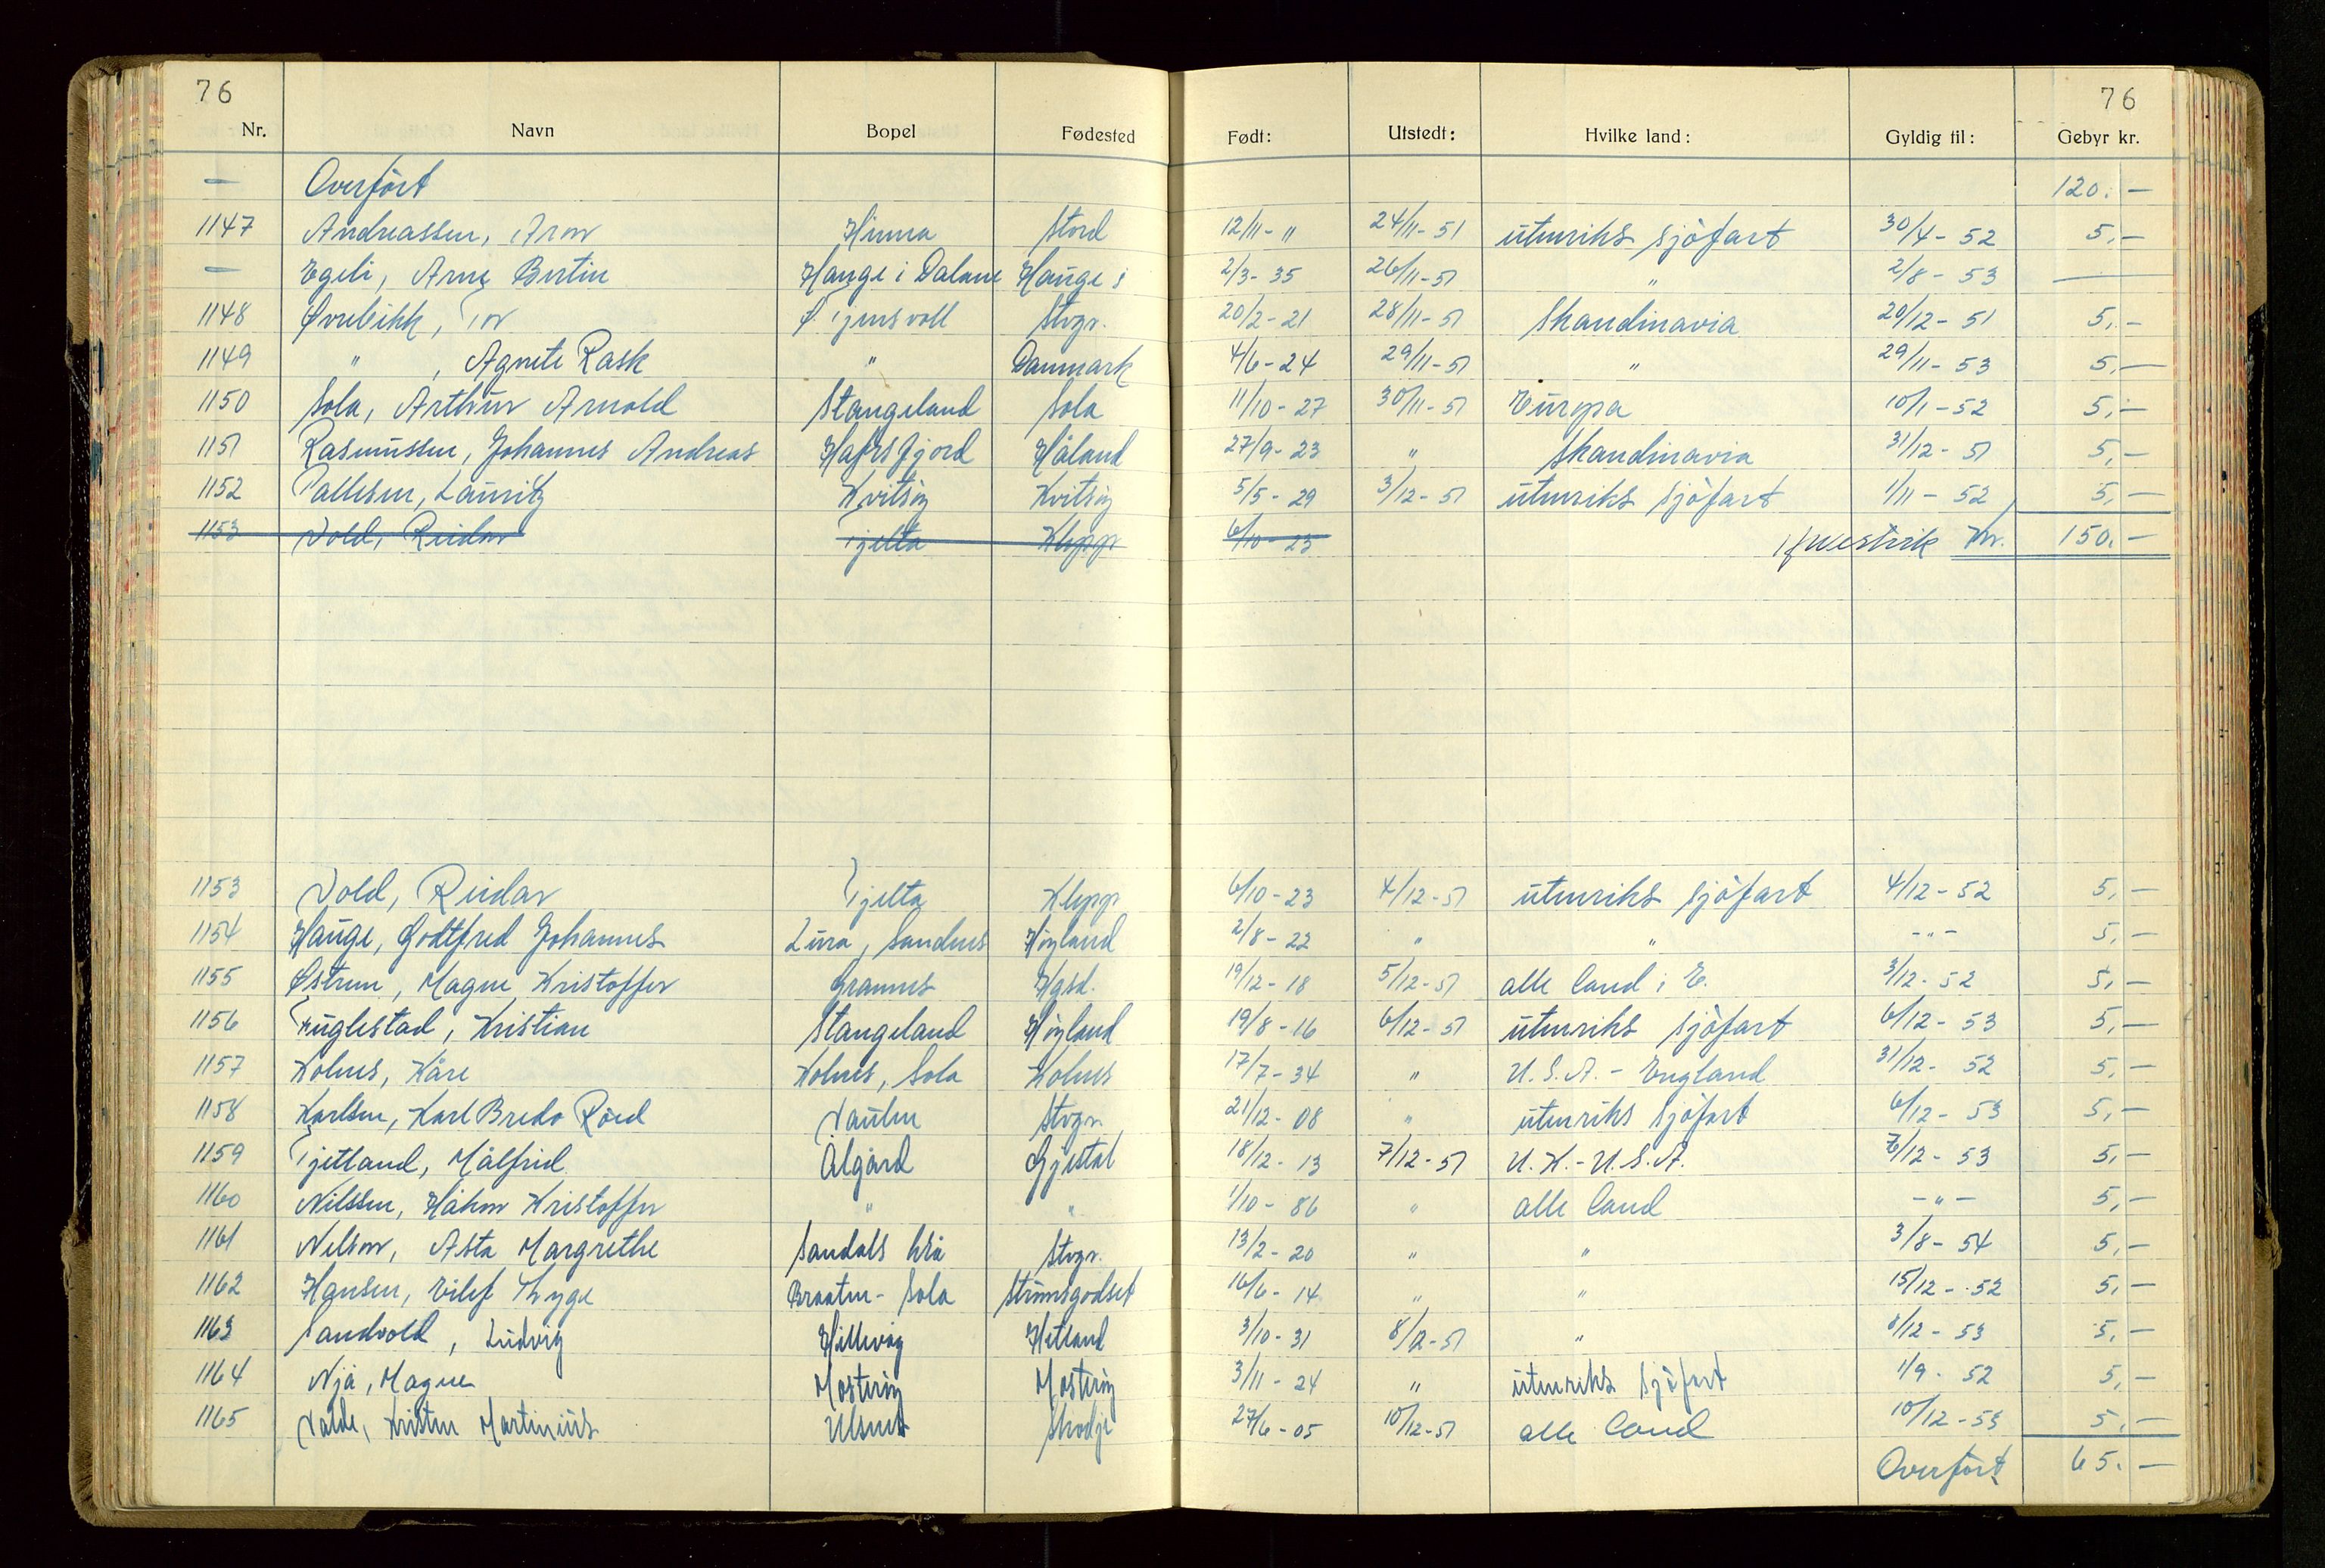 76 76
Nr. Navn Bopel Fødested Født: Utstedt: Hvilke land: Gyldig til: Gebyr kr.
— Overført 120.—
1147 Andreassen, Aron Hinna Stord 12/11-11 24/11-51 utenriks sjöfart 30/4-52 5,—
— Egeli, Arne Bertin Hauge i Dalane Hauge i 2/3-35 26/11-51 " 2/8-53 —
1148 Øvrebikk, Tor Tjensvoll Stvgr. 20/2-21 28/11-51 Skandinavia 20/12-51 5,—
1149 " , Agnete Rask " Danmark 4/6-24 29/11-51 " 29/11-53 5,—
1150 Sola, Arthur Arnold Stangeland Sola 11/10-27 30/11-51 Europa 10/1-52 5,—
1151 Rasmussen, Johannes Andreas Hafrsfjord Håland 27/9-23 " Skandinavia 31/12-51 5,—
1152 Pallesen, Lauritz Kvitsöy Kvitsöy 5/5-29 3/12-51 utenriks sjöfart 1/11-52 5,—
1153 Vold, Reidar Tjelta Klepp 6/10-23 Kr. 150.—
1153 Vold, Reidar Tjelta Klepp 6/10-23 4/12-51 utenriks sjöfart 4/12-52 5,—
1154 Hauge, Godtfred Johannes Lura, Sandnes Höyland 2/8-22 " " -"- 5,—
1155 Østrem, Magne Kristoffer Grannes Hgsd. 19/12-18 5/12-51 alle land i E. 3/12-52 5,—
1156 Fuglestad, Kristian Stangeland Höyland 19/8-16 6/12-51 utenriks sjöfart 6/12-53 5,—
1157 Kolnes, Kåre Kolnes, Sola Kolnes 17/7-34 " U.S.A. - England 31/12-52 5,—
1158 Karlsen, Karl Bredo Röed Vaulen Stvgr. 21/12-08 " utenriks sjöfart 6/12-53 5,—
1159 Tjetland, Målfrid Ålgård Gjestal 18/12-13 7/12-51 U.K.-U.S.A. 7/12-53 5,—
1160 Nilssen, Håkon Kristoffer " " 1/10-86 " alle land -"- 5,—
1161 Nelson, Asta Margrethe Sandals Stvgr. 13/2-20 " " 3/8-54 5,—
1162 Hansen, Eilef Thyge Braaten - Sola Strömsgodset 16/6-14 " " 15/12-52 5,—
1163 Sandvold, Ludvig Hillevåg Hetland 3/10-31 8/12-51 " 8/12-53 5,—
1164 Njå, Magne Mosteröy Mosteröy 3/11-24 " utenriks sjöfart 1/9-52 5,—
1165 Kristen Martinius Ulsnes Skodje 27/6-05 10/12-51 alle land 10/12-53 5,—
Overfört 65.—